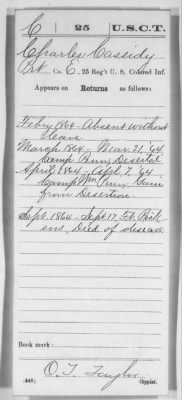 C 25 U.S.C.T.
Charles Cassidy
Pvt., Co. E, 25 Reg't U. S. Colored Inf.
Appears on Returns as follows:
Feby 1864 - Absent without
leave
March 1864 - Mar. 21, '64
Camp Penn, Deserted
April 1864 - Apl. 2 '64
Camp Wm Penn, Gain
from Desertion.
Sept. 1864 - Sept 17, Ft. Pick-
ens, Died of disease
Book mark:
O. T. Taylor
Copyist.